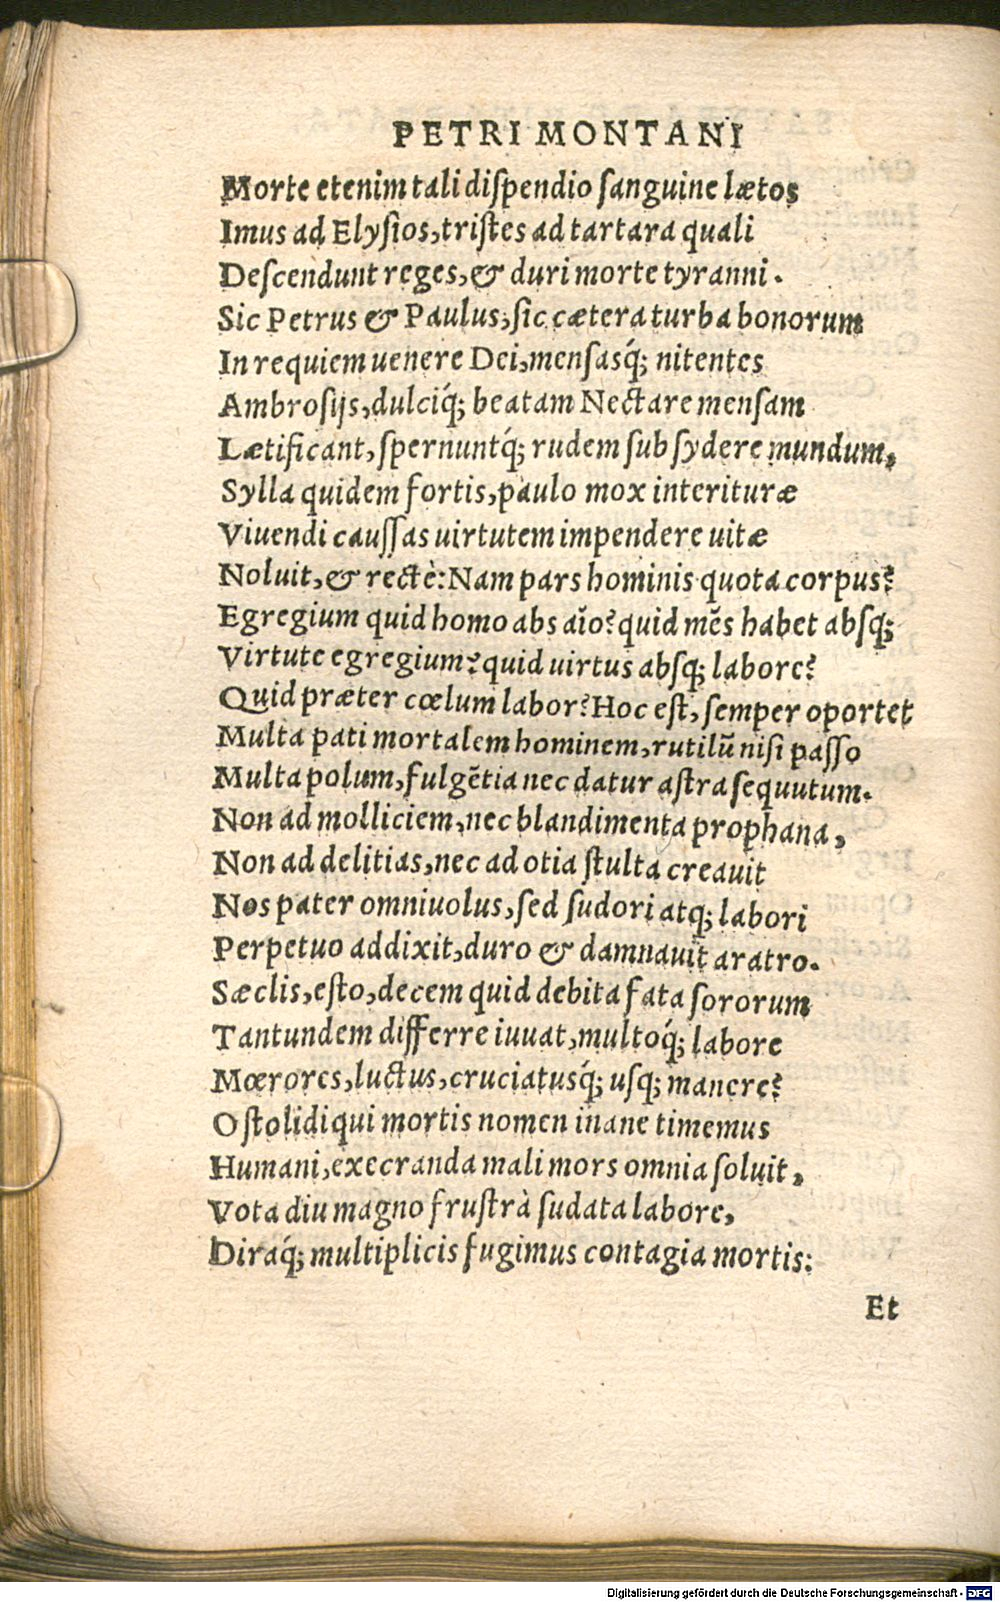 PETRI MONTANI
Morte etenim tali dispendio sanguine lætos
Imus ad Elysios, tristes ad tartara quali
Descendunt reges, & duri morte tyranni.
Sic Petrus & Paulus, sic cætera turba bonorum
In requiem uenere Dei, mensasq́; nitentes
Ambrosijs, dulciq́; beatam Nectare mensam
Lætificant, spernuntq́; rudem sub sydere mundum,
Sylla quidem fortis, paulo mox interituræ
Viuendi caussas uirtutem impendere uitæ
Noluit, & rectè: Nam pars hominis quota corpus?
Egregium quid homo abs aĩo? quid mẽs habet absq;
Virtute egregium? quid uirtus absq; labore?
Quid præter cœlum labor? Hoc est, semper oportet
Multa pati mortalem hominem, rutilũ nisi passo
Multa polum, fulgẽtia nec datur astra sequutum.
Non ad molliciem, nec blandimenta prophana,
Non ad delitias, nec ad otia stulta creauit
Nos pater omniuolus, sed sudori atq; labori
Perpetuo addixit, duro & damnauit aratro.
Sæclis, esto, decem quid debita fata sororum
Tantundem differre iuuat, multoq́; labore
Mœrores, luctus, cruciatusq́; usq; manere?
O stolidi qui mortis nomen inane timemus
Humani, execranda mali mors omnia soluit,
Vota diu magno frustrà sudata labore,
Diraq́; multiplicis fugimus contagia mortis:
Et
Digitalisierung gefördert durch die Deutsche Forschungsgemeinschaft - DFG